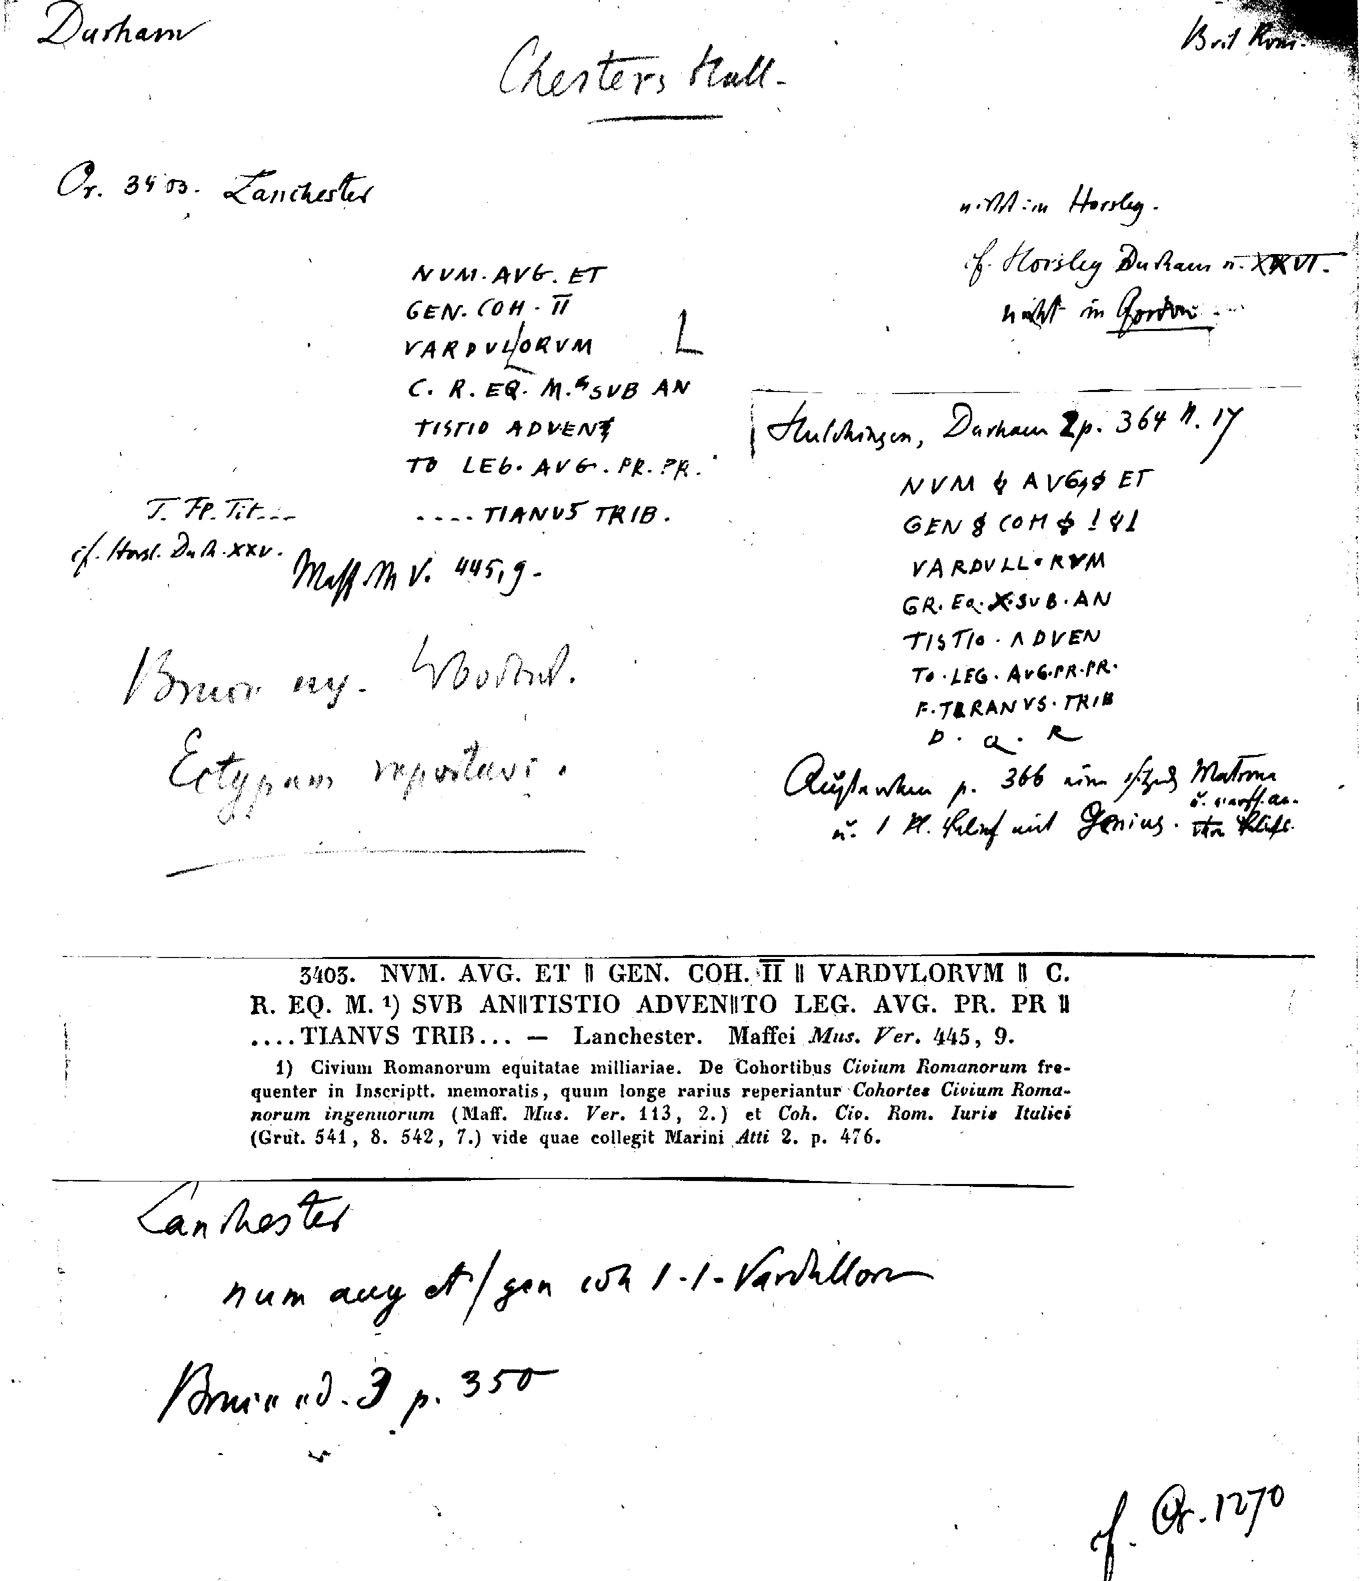 Durham
Brit Rom.
Chesters Hall.
Or. 3403. Lanchester
nicht in Horsley.
cf. Horsley Durham n. XXVI.
nicht in Gordon
NVM. AVG. ET
GEN. COH. II
VARDVLORVM
L
C. R. EQ. M. SVB AN
TISTIO ADVEN
TO LEG. AVG. PR. PR.
....TIANVS TRIB.
T. Fl. Tit...
cf. Horsl. Durh. XXV.
Maff. M V. 445,9.
Bruce
Ectypum reportavi.
Hutchinson, Durham 2 p. 364 n. 17
NVM AVG ET
GEN COH I I
VARDVLLORVM
GR. EQ. X. SVB. AN
TISTIO. ADVEN
TO. LEG. AVG. PR. PR.
F. TERANVS. TRIB
D. Q. R
p. 366 Matrona
u. 1 kl. Relief mit Genius.
3403. NVM. AVG. ET || GEN. COH. II || VARDVLORVM || C.
R. EQ. M. ¹) SVB AN||TISTIO ADVEN||TO LEG. AVG. PR. PR ||
....TIANVS TRIB... — Lanchester. Maffei Mus. Ver. 445, 9.
1) Civium Romanorum equitatae milliariae. De Cohortibus Civium Romanorum fre-
quenter in Inscriptt. memoratis, quum longe rarius reperiantur Cohortes Civium Roma-
norum ingenuorum (Maff. Mus. Ver. 113, 2.) et Coh. Civ. Rom. Iuris Italici
(Grut. 541, 8. 542, 7.) vide quae collegit Marini Atti 2. p. 476.
Lanchester
num aug et / gen coh 1-1-Vardullorum
Bruce ed. 3 p. 350
cf. Or. 1270